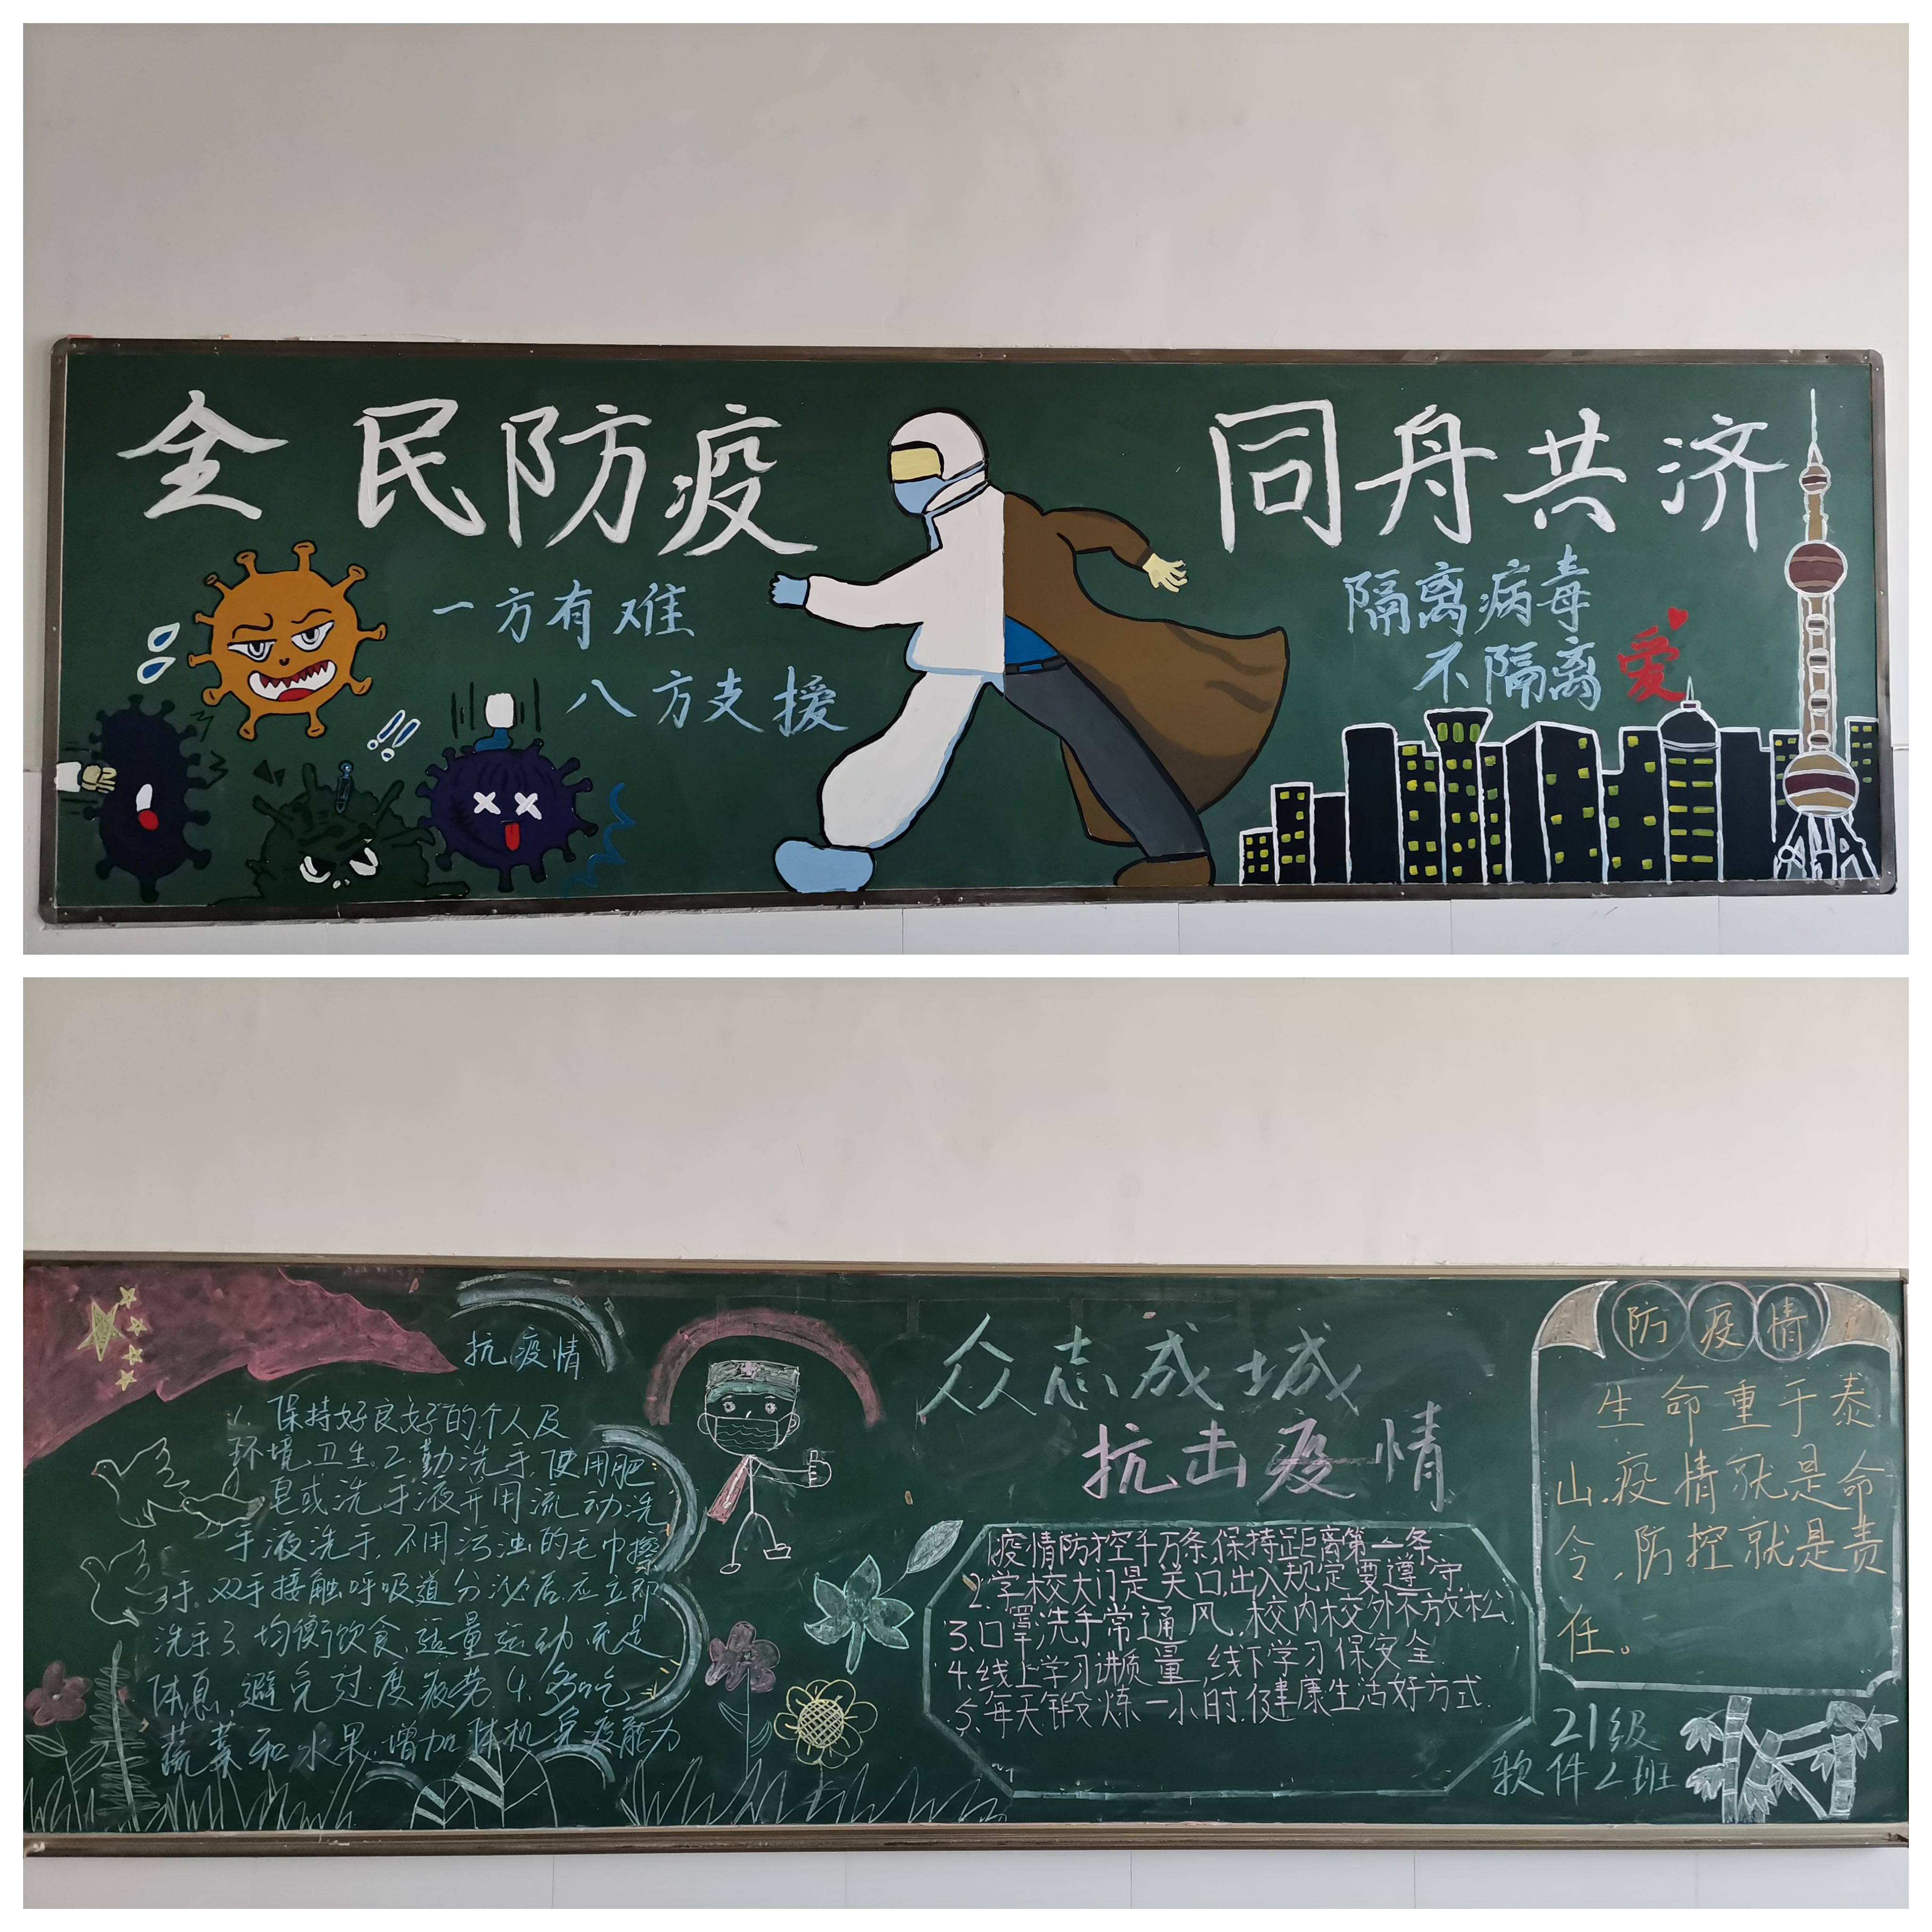 全民防疫
同舟共济
一方有难
八方支援
隔离病毒
不隔离爱
抗疫情
1. 保持好良好的个人及
环境卫生。2.勤洗手,使用肥
皂或洗手液并用流动洗
手液洗手,不用污浊的毛巾擦
手,双手接触呼吸道分泌后,应立即
洗手3.均衡饮食,适量运动,充足
体息,避免过度疲劳 4.多吃
蔬菜和水果,增加体机免疫能力
众志成城
抗击疫情
1.疫情防控千万条,保持距离第一条
2.学校大门是关口,出入规定要遵守
3.口罩洗手常通风,校内校外不放松.
4.线上学习讲质量,线下学习保安全.
5.每天锻炼一小时,健康生活好方式.
防疫情
生命重于泰
山.疫情就是命
令,防控就是责
任。
21级
软件2班